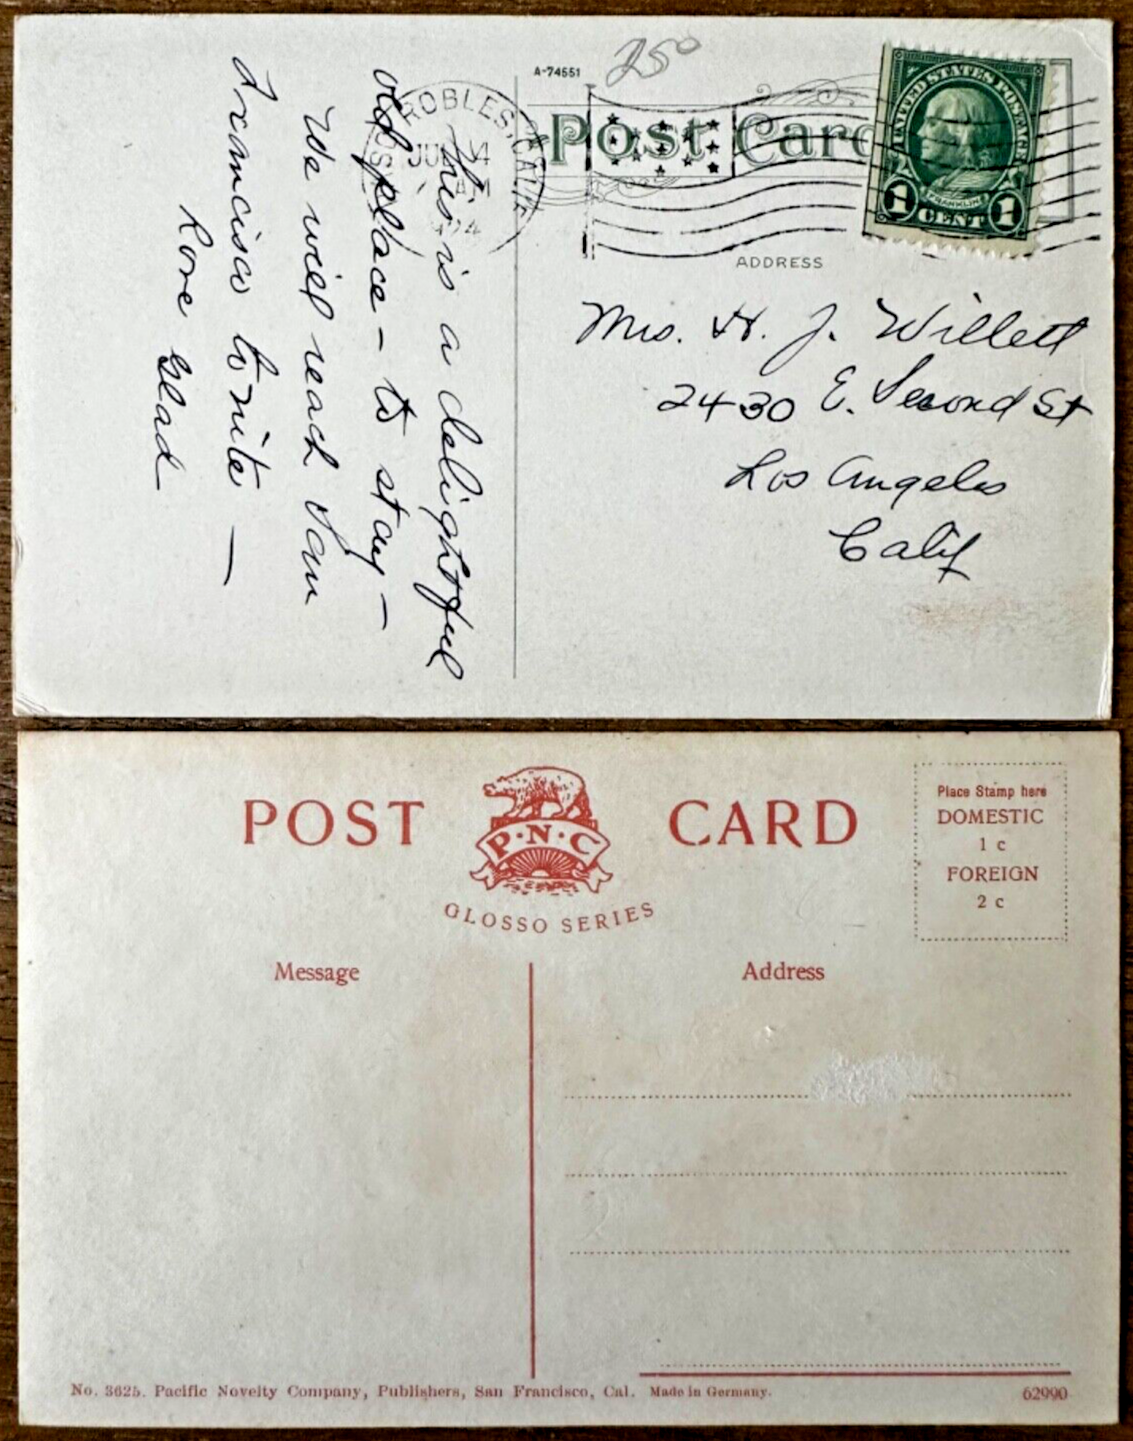 A-74551
250
ROBLES, CALIF
Post Card
UNITED STATES POSTAGE
FRANKLIN
1 CENT 1
ADDRESS
This is a delightful
old place - to stay -
We will reach San
Francisco to nite -
Love Glad
Mrs. H. J. Willett
2430 E. Second St
Los Angeles
Calif
POST CARD
P·N·C
GLOSSO SERIES
Place Stamp here
DOMESTIC
1 c
FOREIGN
2 c
Message
Address
No. 3625. Pacific Novelty Company, Publishers, San Francisco, Cal. Made in Germany.
62990